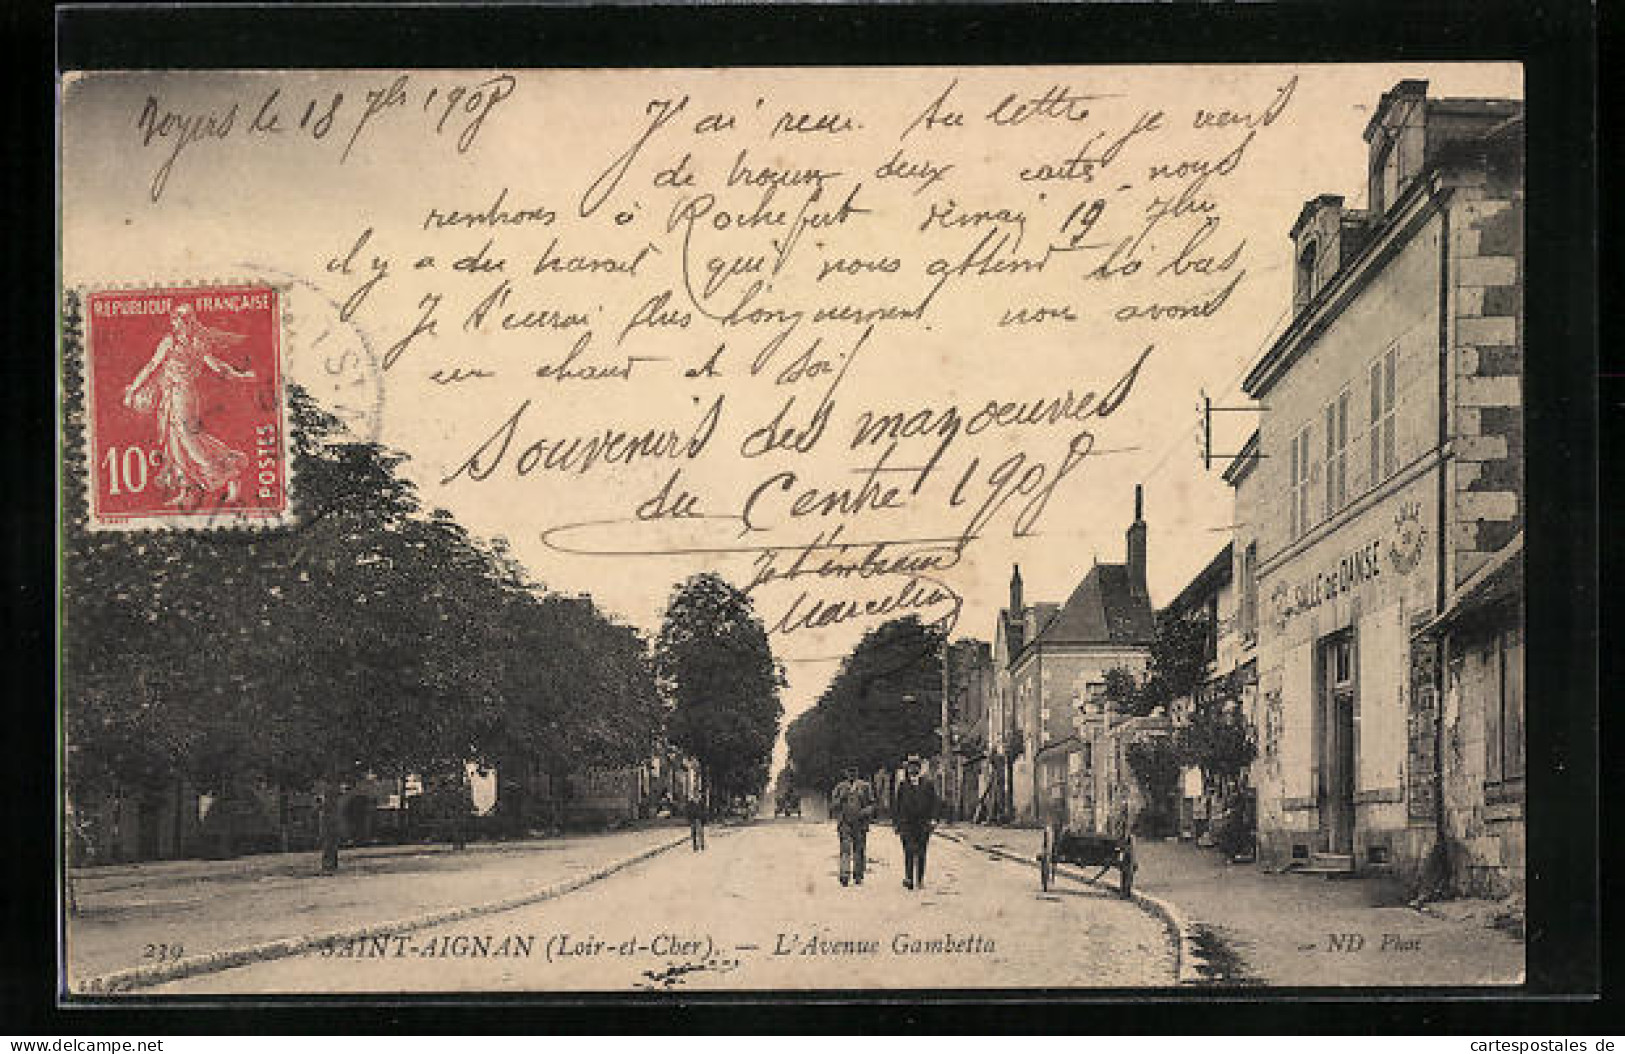 Noyers le 18 7bre 1908
J'ai recu ta lettre, je viens
de trouver deux cartes, nous
rentrons à Rochefort demain 19 7bre
il y a du travail qui nous attend là bas
Je t'ecrirai plus longuement. nous avons
eu chaud et soif
Souvenirs des manoeuvres
du Centre 1908
Je t'embrasse
Marcel
REPUBLIQUE FRANÇAISE
10c
POSTES
SALLE DE DANSE
239 SAINT-AIGNAN (Loir-et-Cher). — L'Avenue Gambetta
ND Phot
Delcampe.net
cartespostales de